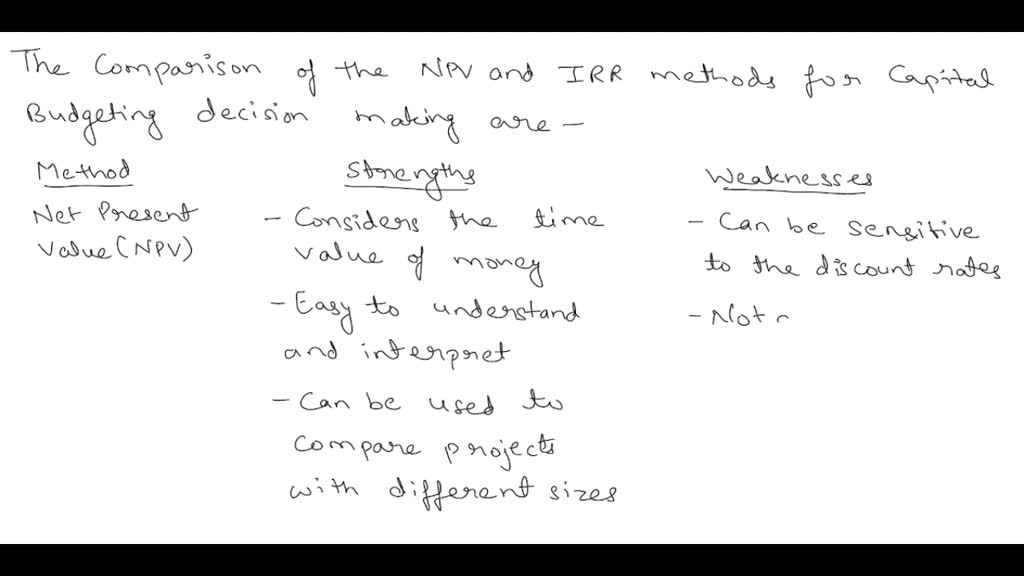 The Comparison of the NPV and IRR methods for Capital
Budgeting decision making are -
Method
Strengths
Weaknesses
Net Present
Value (NPV)
- Considers the time
value of money
- Easy to understand
and interpret
- Can be used to
compare projects
with different sizes
- Can be sensitive
to the discount rates
- Not